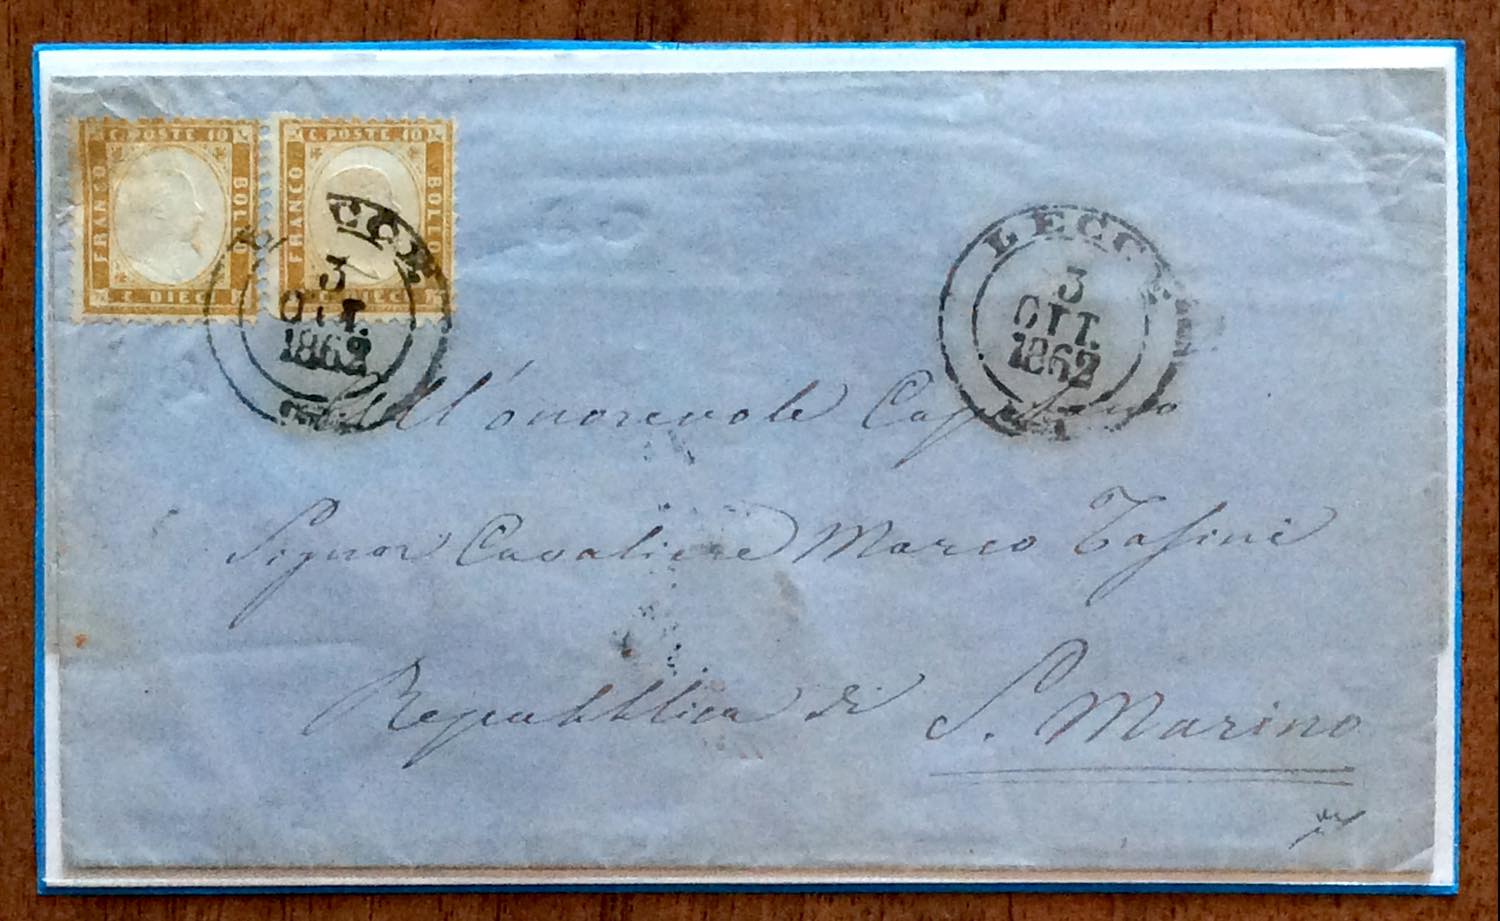 C. POSTE 10
FRANCO
BOLLO
C. DIECI
C. POSTE 10
FRANCO
BOLLO
C. DIECI
LECCE
3
OTT.
1862
LECCE
3
OTT.
1862
All'onorevole Capitano
Signor Cavaliere Marco Tasini
Repubblica di S. Marino